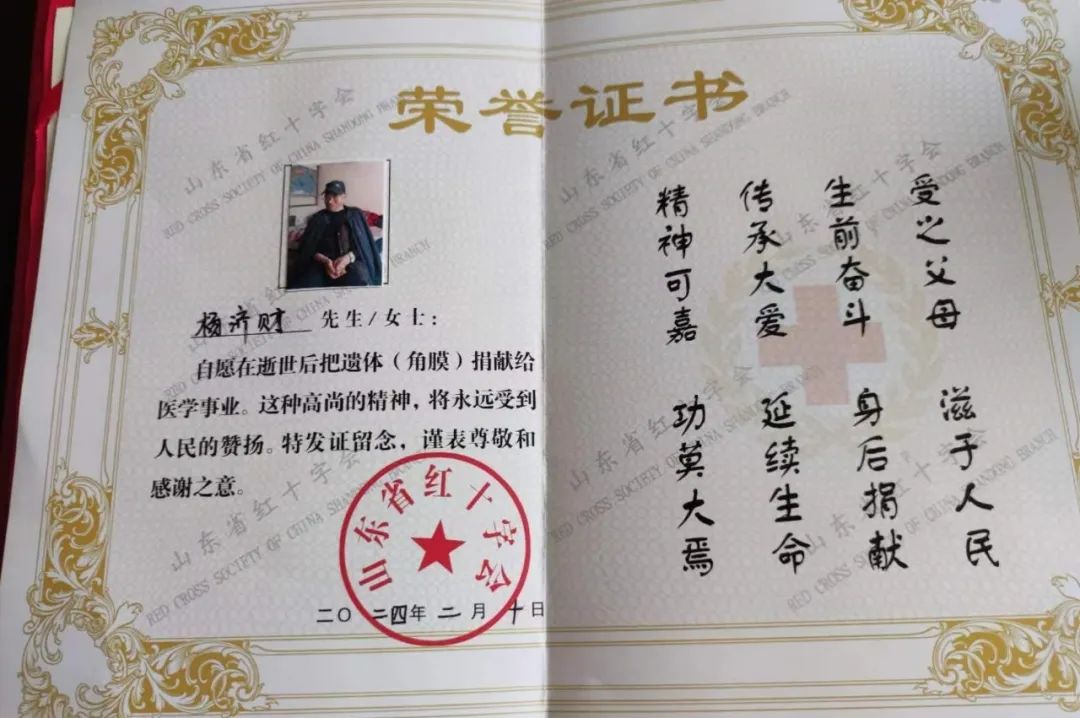 荣誉证书
杨济财 先生/女士：
自愿在逝世后把遗体（角膜）捐献给
医学事业。这种高尚的精神，将永远受到
人民的赞扬。特发证留念，谨表尊敬和
感谢之意。
山东省红十字会
二〇二四年二月十日
受之父母 滋于人民
生前奋斗 身后捐献
传承大爱 延续生命
精神可嘉 功莫大焉
山东省红十字会
RED CROSS SOCIETY OF CHINA SHANDONG BRANCH
山东省红十字会
RED CROSS SOCIETY OF CHINA SHANDONG BRANCH
山东省红十字会
RED CROSS SOCIETY OF CHINA SHANDONG BRANCH
山东省红十字会
RED CROSS SOCIETY OF CHINA SHANDONG BRANCH